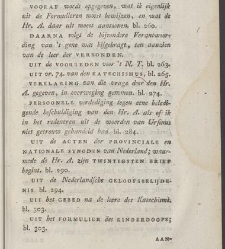 VOORAF wordt opgegeven, wat ik eigenlijk
uit de Formulieren moet bewijzen, en wat de
Hr. A. daar uit moet aantonen. bl. 260.
DAARNA volgt de bijzondere Verantwoor-
ding van 't gene was bijgebragt, ten aanzien
van de leer der VERBONDEN.
UIT de VOORREDEN voor 't N. T. bl. 263.
UIT vr. 74. van den KATECHISMUS. bl. 265.
VERKLARING van die vrage door den Hr.
A. gegeven, in overweging genomen. bl. 274.
PERSONEELE verdediging tegen eene beledi-
gende beschuldiging van den Hr. A. als of ik
in het redeneren uit de woorden van Ursinus
niet getrouw gehandeld had. bl. 284.
UIT de ACTEN der PROVINCIALE en
NATIONALE SYNODEN van Nederland; waar-
mede de Hr. A. zijn TWINTIGSTEN BRIEF
begint. bl. 290.
UIT de Nederlandsche GELOOFSBELIJDE-
NIS bl. 294.
UIT het GEBED na de leere des Katechismi.
bl. 303.
UIT het FORMULIER des KINDERDOOPS;
bl. 303.
AAN-